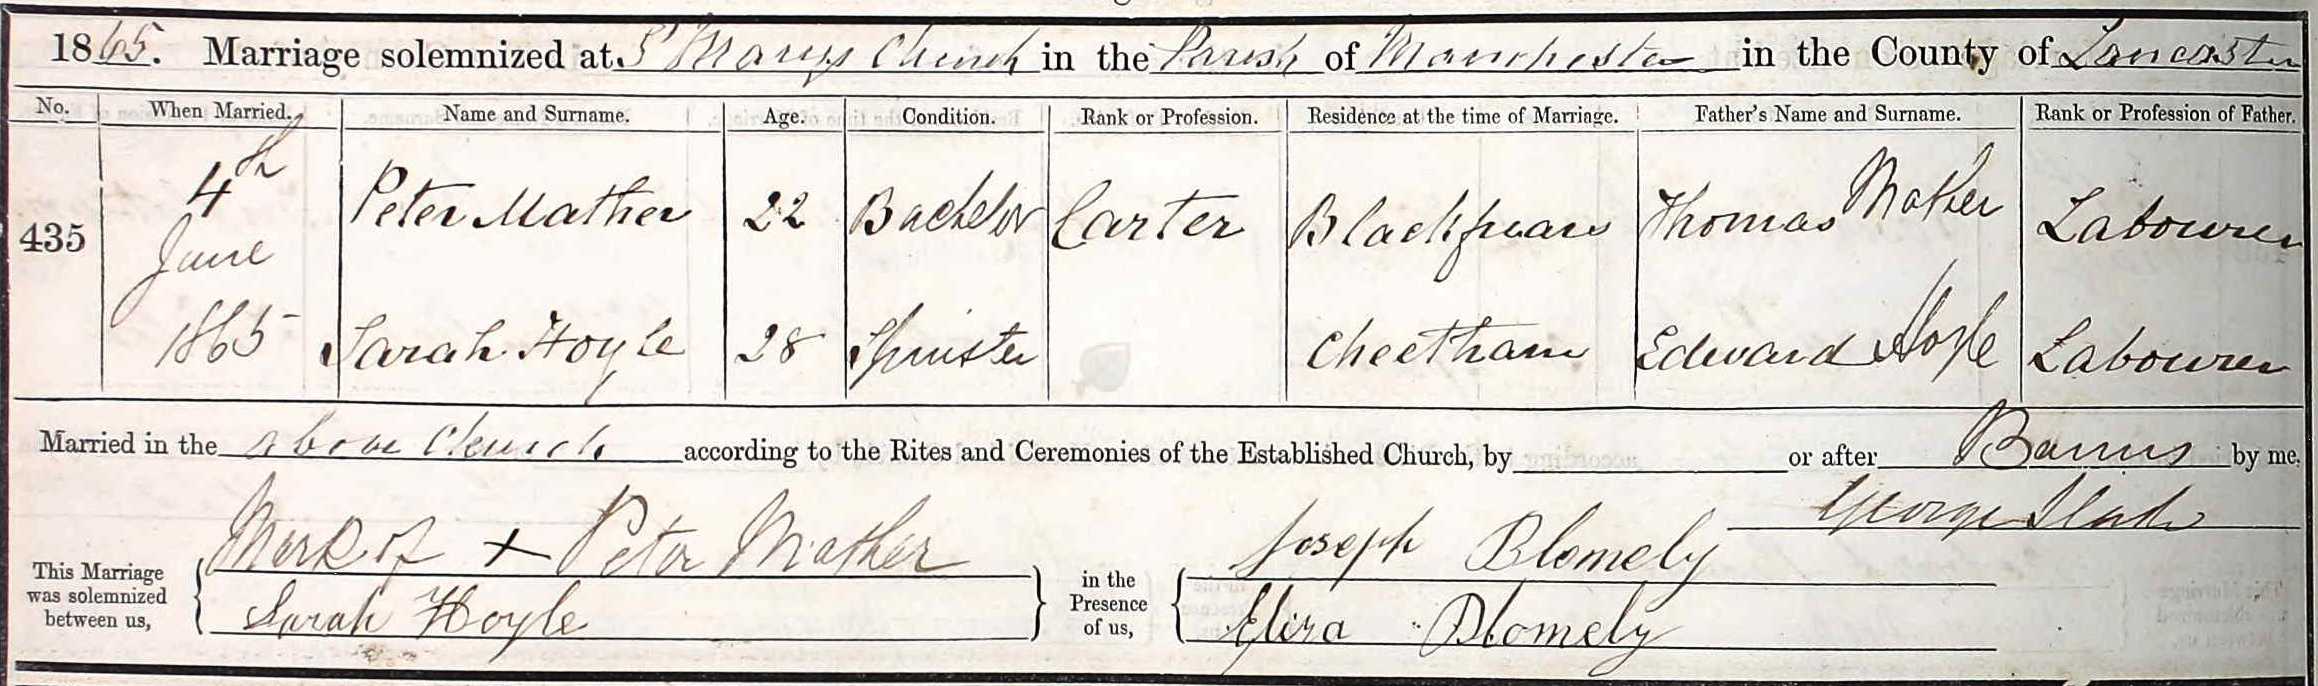 1865. Marriage solemnized at St Marys Church in the Parish of Manchester in the County of Lancaster
No. When Married. Name and Surname. Age. Condition. Rank or Profession. Residence at the time of Marriage. Father's Name and Surname. Rank or Profession of Father.
435 4th June 1865 Peter Mather 22 Bachelor Carter Blackfriars Thomas Mather Labourer
Sarah Hoyle 28 Spinster Cheetham Edward Hoyle Labourer
Married in the above Church according to the Rites and Ceremonies of the Established Church, by or after Banns by me,
George
This Marriage was solemnized between us, Mark of + Peter Mather in the Presence of us, Joseph Blomely
Sarah Hoyle Eliza Blomely